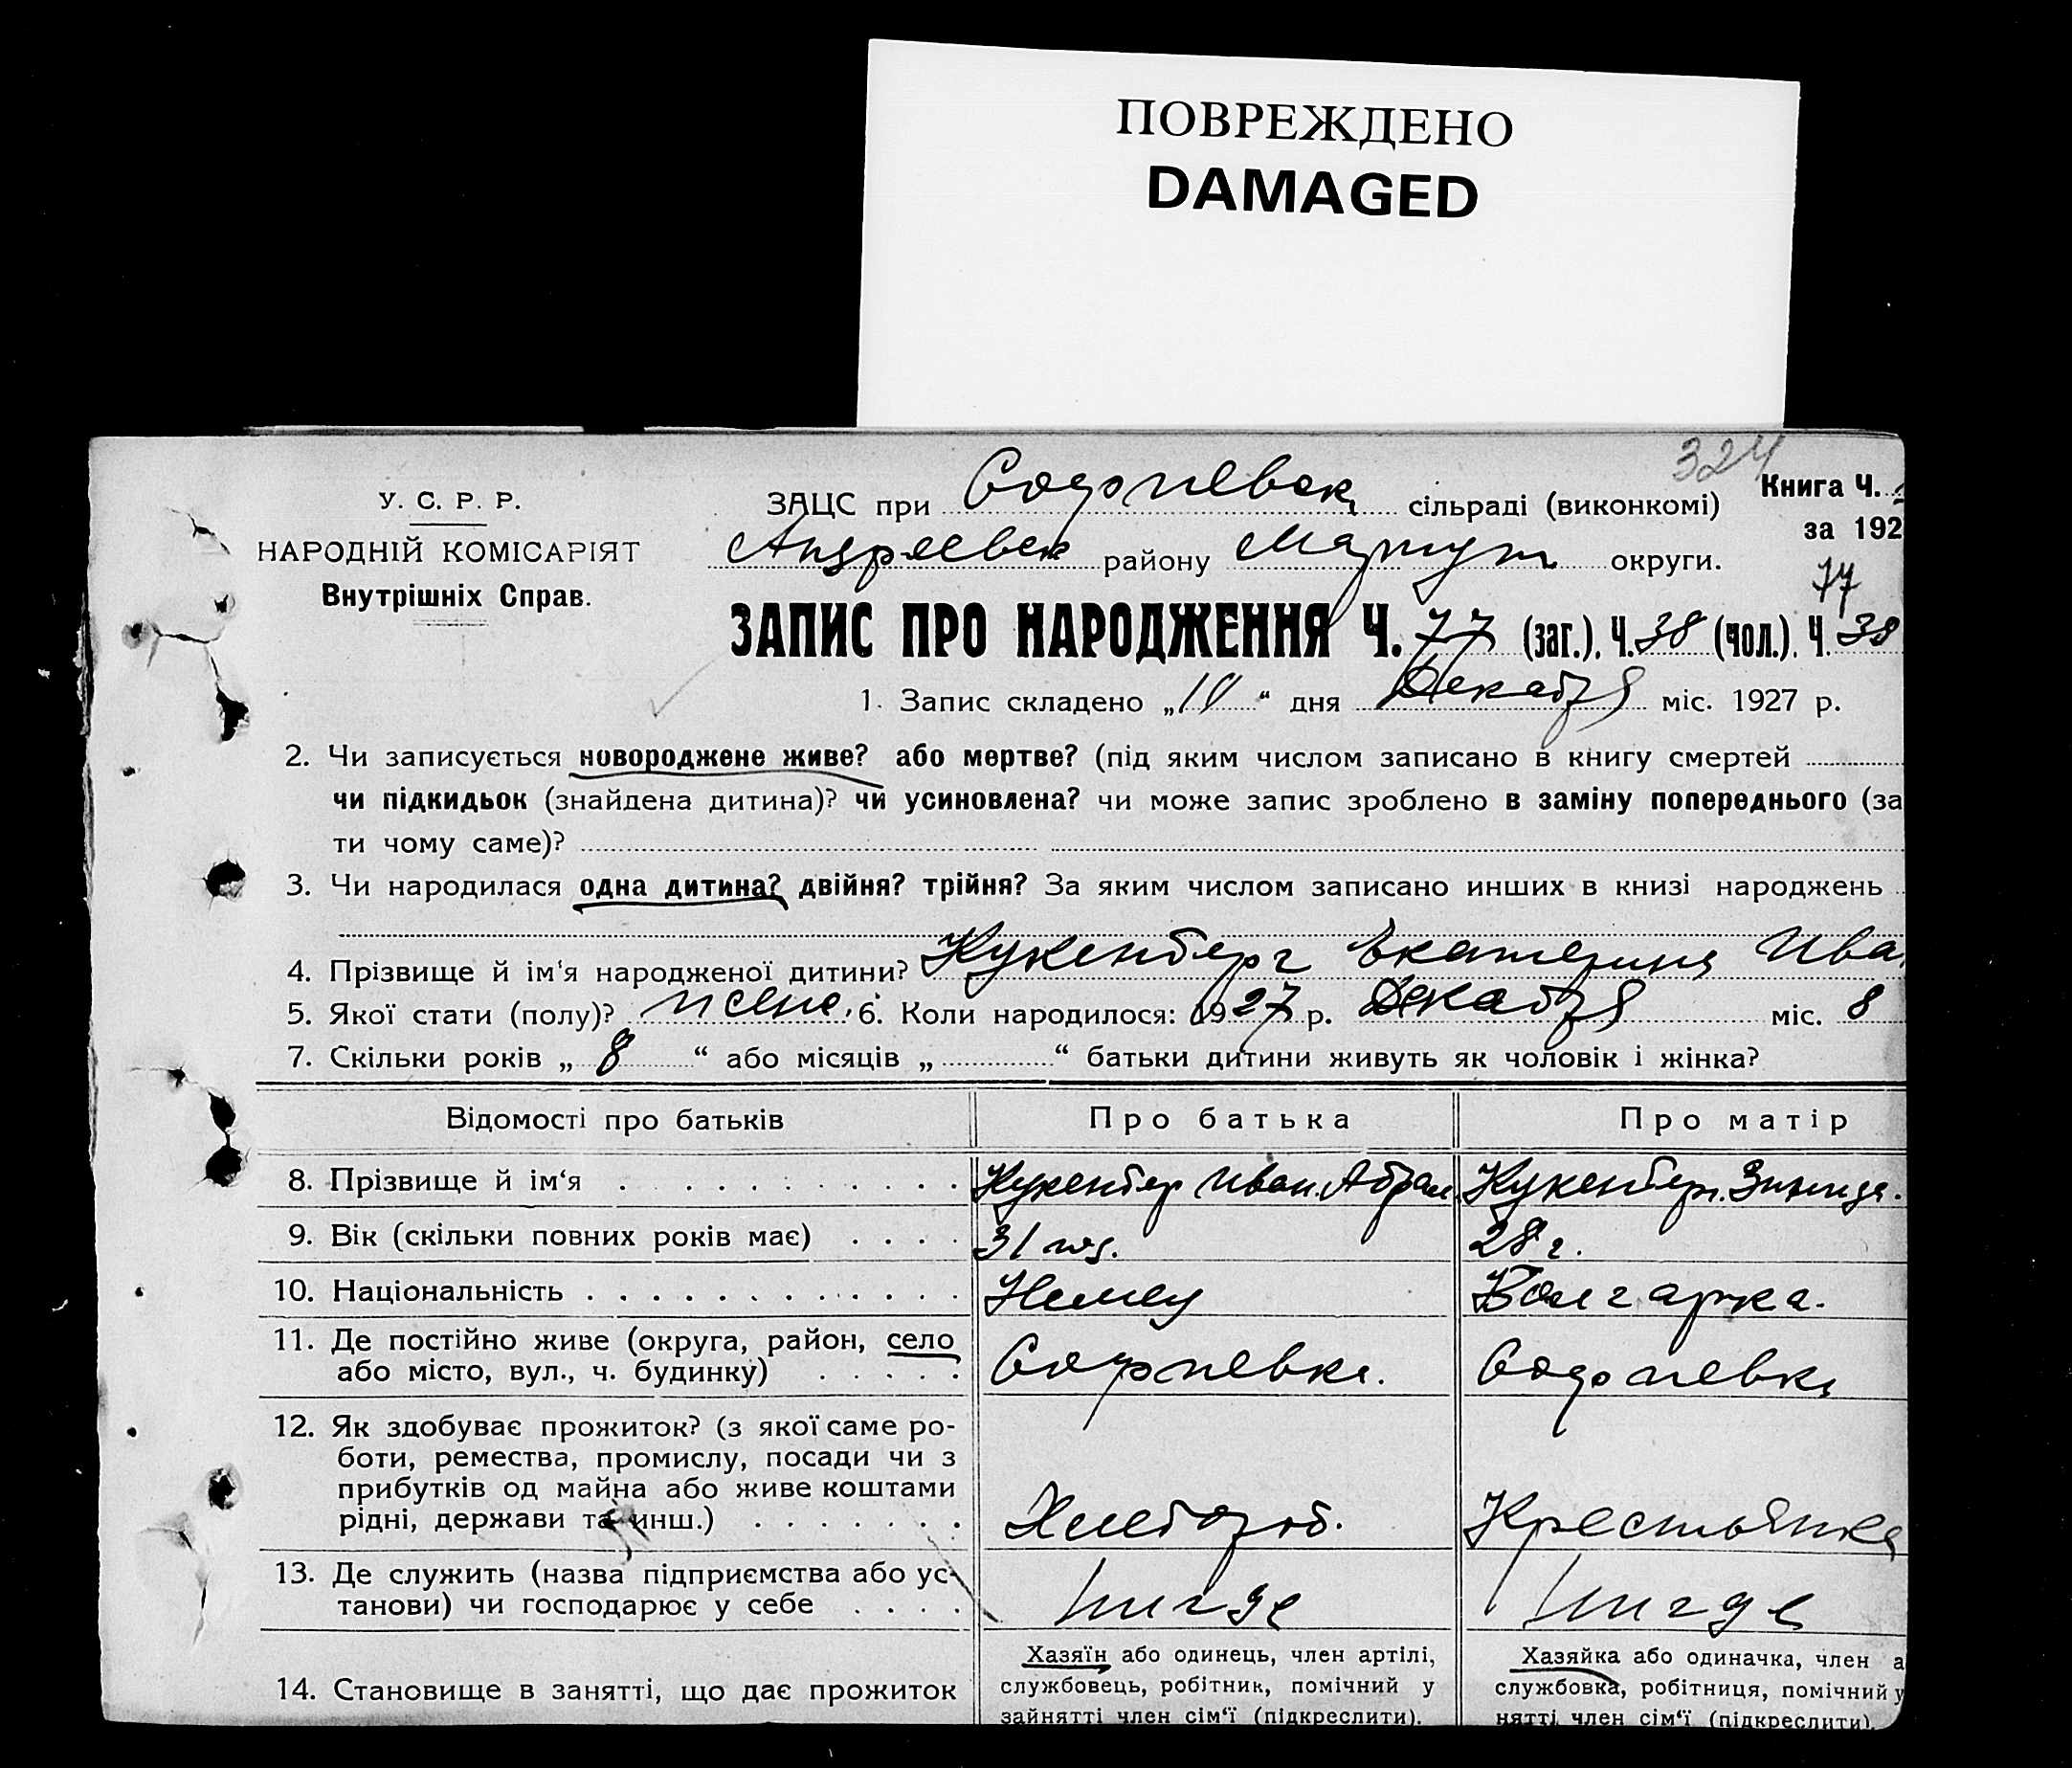 ПОВРЕЖДЕНО
DAMAGED
324
У. С. Р. Р.
НАРОДНІЙ КОМІСАРІЯТ
Внутрішніх Справ.
ЗАЦС при сільраді (виконкомі)
Книга Ч.
за 192
Андреевск району Мариуп округи.
77
ЗАПИС ПРО НАРОДЖЕННЯ Ч. 77 (заг.). Ч. 38 (чол.). Ч. 38
1. Запис складено „ “ дня Декабря міс. 1927 р.
2. Чи записується новороджене живе? або мертве? (під яким числом записано в книгу смертей
чи підкидьок (знайдена дитина)? чи усиновлена? чи може запис зроблено в заміну попереднього (за
ти чому саме)?
3. Чи народилася одна дитина? двійня? трійня? За яким числом записано инших в книзі народжень
4. Прізвище й ім‘я народженої дитини? Кукенберг Екатерина Ива
5. Якої стати (полу)? женс. 6. Коли народилося: 1927 р. Декабря міс. 8
7. Скільки років „ 8 “ або місяців „ “ батьки дитини живуть як чоловік і жінка?
Відомості про батьків Про батька Про матір
8. Прізвище й ім‘я Кукенберг Иван. Абрам. Кукенберг. Зинида.
9. Вік (скільки повних років має) 31 год. 28 г.
10. Національність Немец Болгарка.
11. Де постійно живе (округа, район, село
або місто, вул., ч. будинку)
12. Як здобуває прожиток? (з якої саме ро-
боти, ремества, промислу, посади чи з
прибутків од майна або живе коштами
рідні, держави та инш.) Хлебороб. Крестьянка
13. Де служить (назва підприємства або ус-
танови) чи господарює у себе Нигде Нигде
14. Становище в занятті, що дає прожиток
Хазяїн або одинець, член артілі,
службовець, робітник, помічний у
зайнятті член сім‘ї (підкреслити).
Хазяйка або одиначка, член а
службовка, робітниця, помічний у
нятті член сім‘ї (підкреслити).